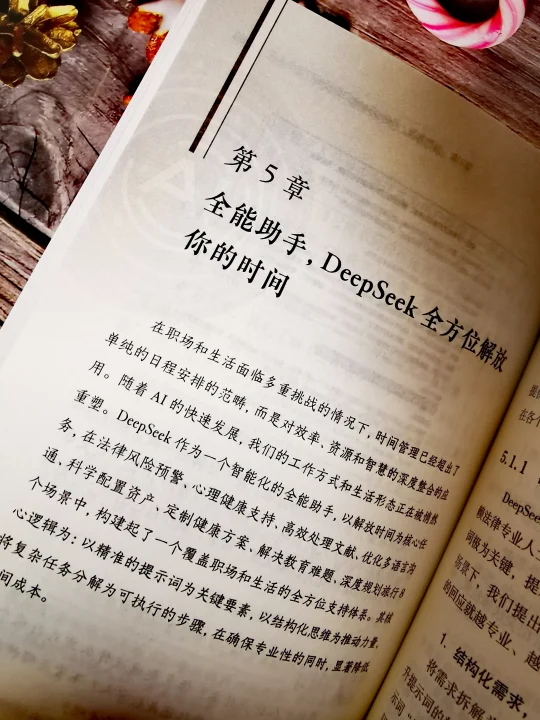 第 5 章
全能助手，DeepSeek 全方位解放
你的时间
在职场和生活面临多重挑战的情况下，时间管理已经超出了
单纯的日程安排的范畴，而是对效率、资源和智慧的深度整合的应
用。随着 AI 的快速发展，我们的工作方式和生活形态正在被悄然
重塑。DeepSeek 作为一个智能化的全能助手，以解放时间为核心任
务，在法律风险预警、心理健康支持、高效处理文献、优化多语言沟
通、科学配置资产、定制健康方案、解决教育难题、深度规划旅行 8
个场景中，构建起了一个覆盖职场和生活的全方位支持体系。其核
心逻辑为：以精准的提示词为关键要素，以结构化思维为推动力量，
将复杂任务分解为可执行的步骤，在确保专业性的同时，显著降低
间成本。
提
在各个
5.1.1
DeepSe
赖法律专业人
词极为关键，提
场景下，我们提出
的回应就越专业、越
1. 结构化需求，
将需求拆解
升提示词的
示词“